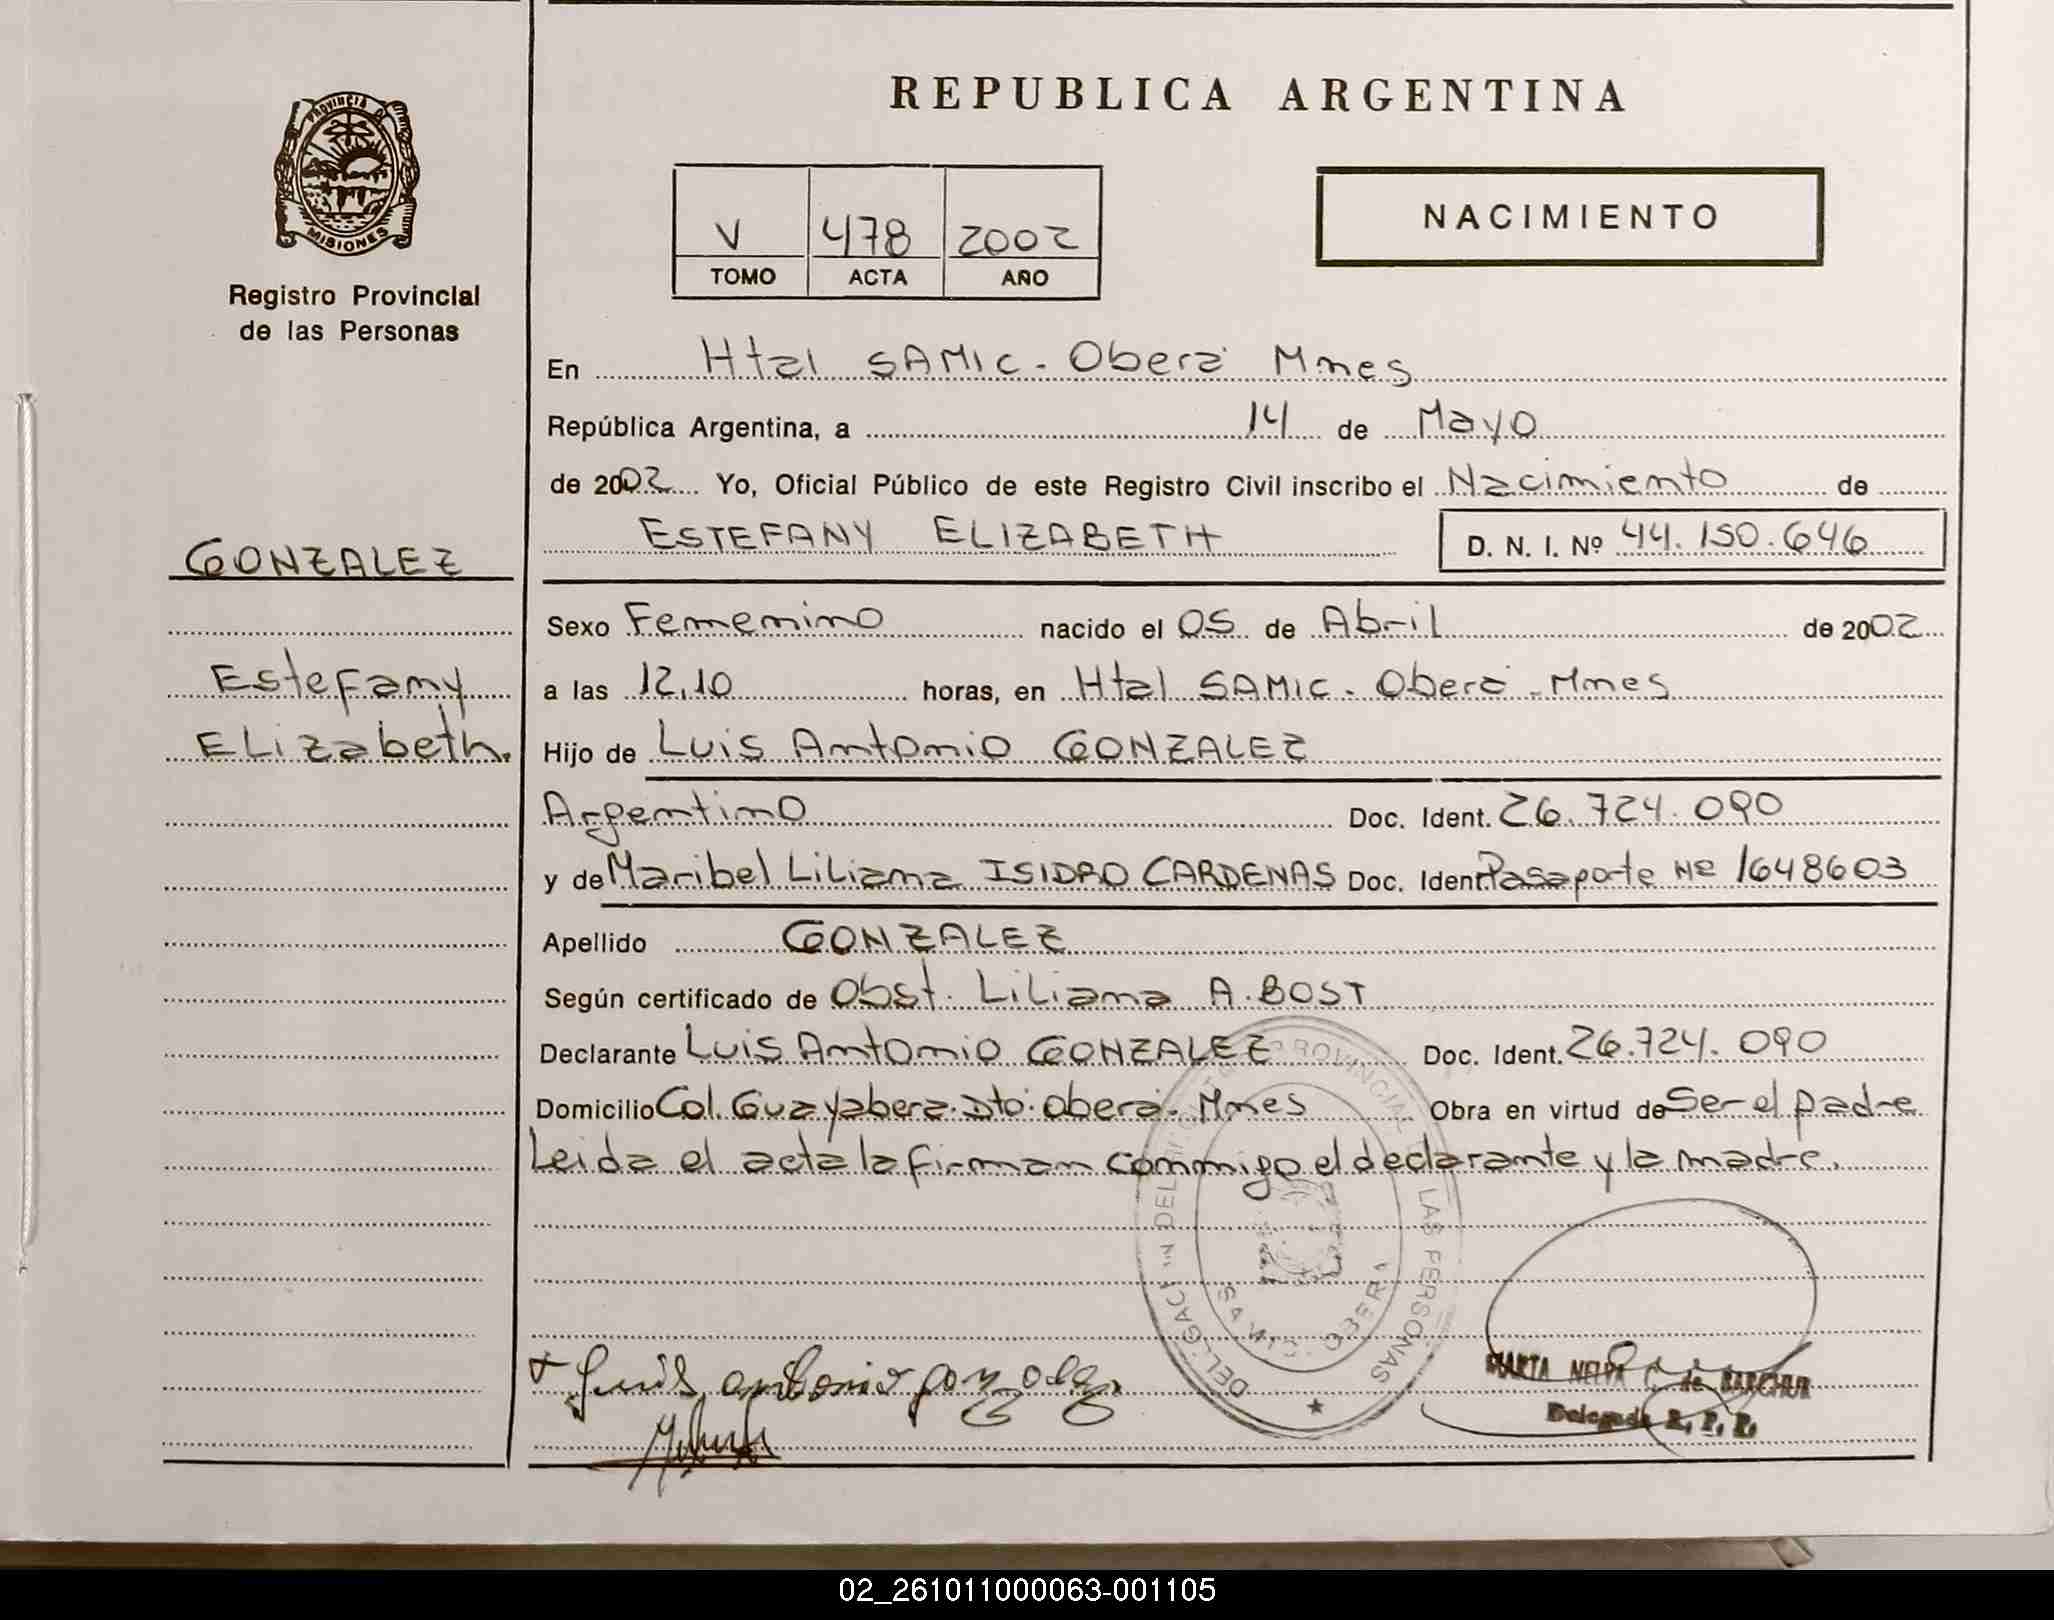 PROVINCIA DE
MISIONES
Registro Provincial
de las Personas
GONZALEZ
Estefany
Elizabeth.
REPUBLICA ARGENTINA
V 478 2002
TOMO ACTA AÑO
NACIMIENTO
En Htal SAMIC - Oberá Mnes
República Argentina, a 14 de Mayo
de 2002 Yo, Oficial Público de este Registro Civil inscribo el Nacimiento de
ESTEFANY ELIZABETH D. N. I. Nº 44.150.646
Sexo Femenino nacido el 05 de Abril de 2002
a las 12,10 horas, en Htal SAMIC - Oberá - Mnes
Hijo de Luis Antonio GONZALEZ
Argentino Doc. Ident. 26.724.090
y de Maribel Liliana ISIDRO CARDENAS Doc. Ident. Pasaporte Nº 1648603
Apellido GONZALEZ
Según certificado de Obst. Liliana A. BOST
Declarante Luis Antonio GONZALEZ Doc. Ident. 26.724.090
Domicilio Col. Guayabera. Dto. Oberá - Mnes Obra en virtud de Ser el padre
Leida el acta la firman conmigo el declarante y la madre.
PROVINCIAL DE LAS PERSONAS
SAMIC OBERA
Luis antonio gonzalez
MARTA NELDA de BARCHUR
Delegada R. P. P.
02_261011000063-001105